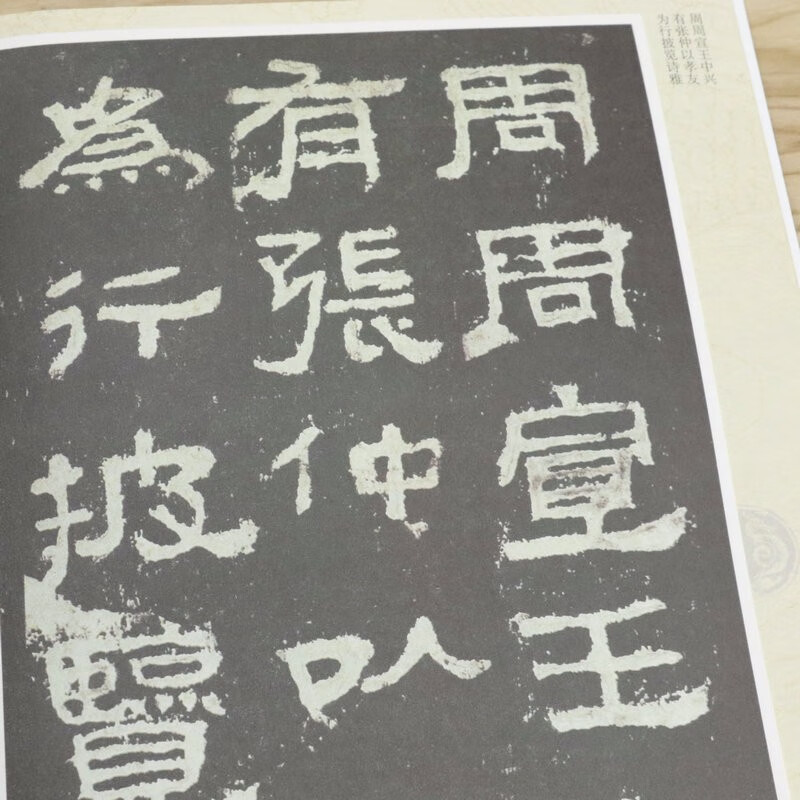 周周宣王
有張仲以
為行披覽
周周宣王中兴
有张仲以孝友
为行披览诗雅